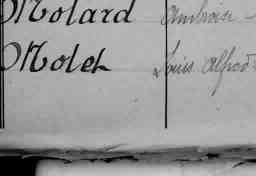 Molard Ambroise
Molet Louis Alfred